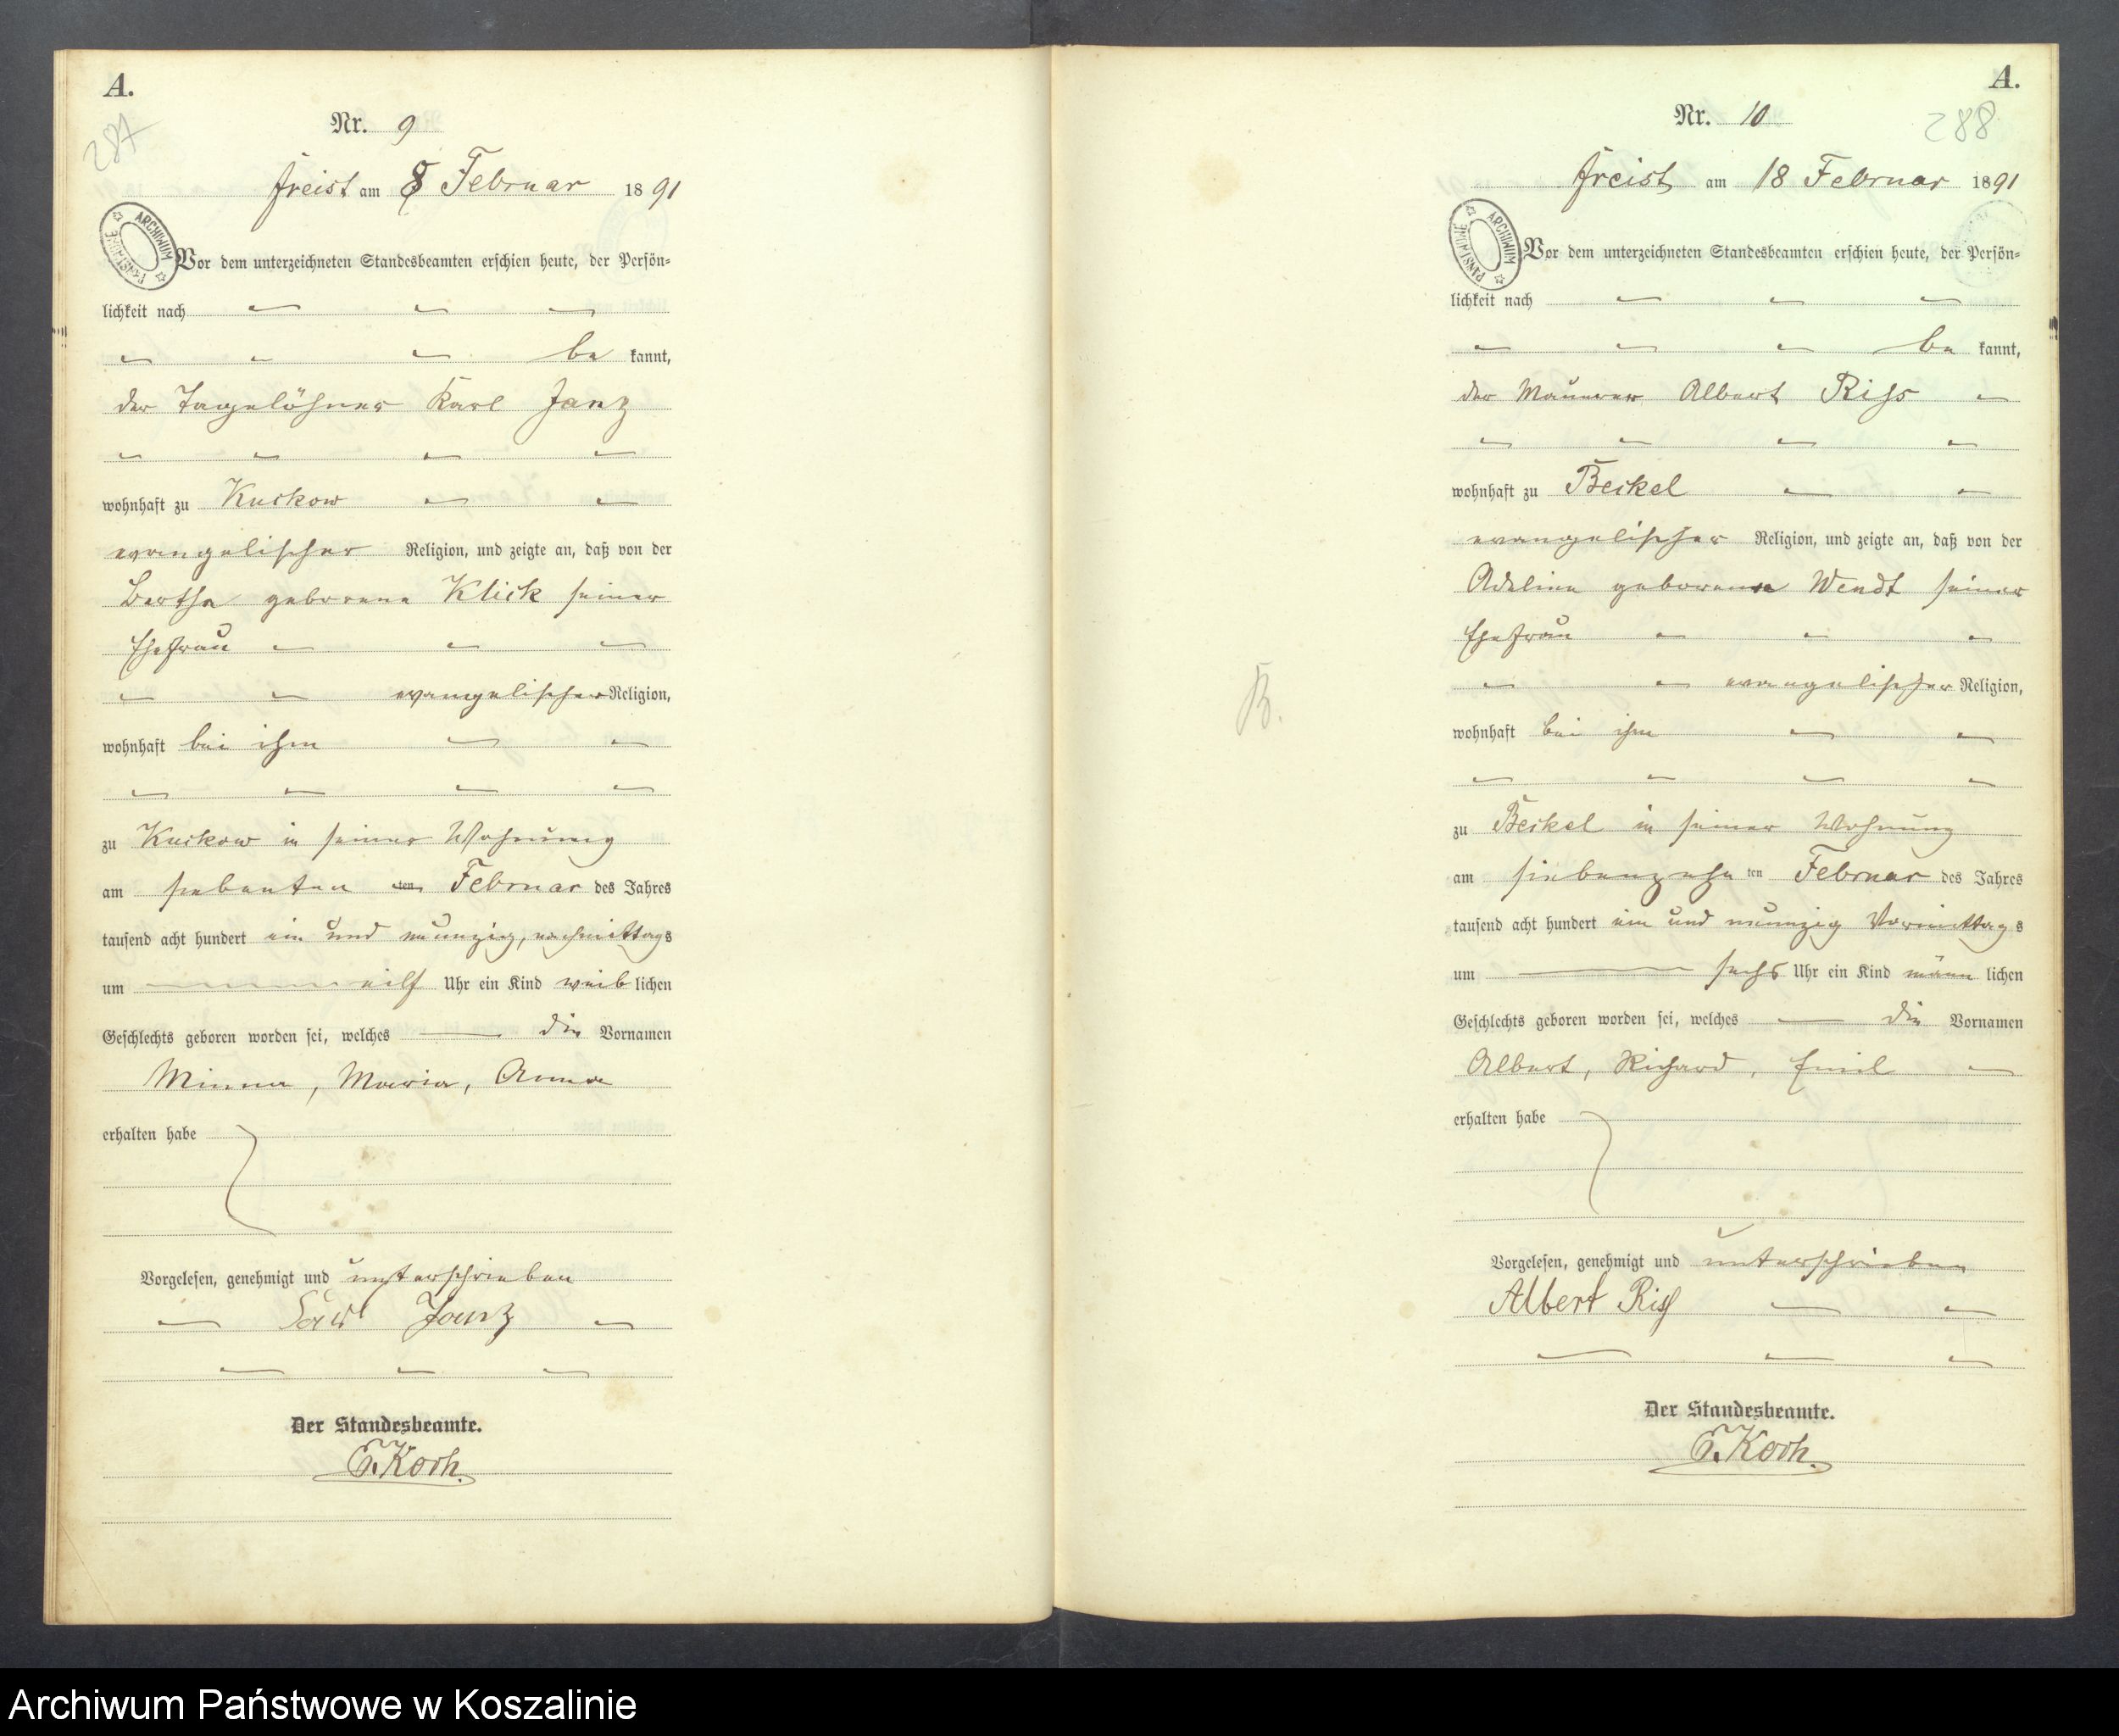 A.
287
Nr. 9
Freist am 8 Februar 1891
ARCHIWUM PAŃSTWOWE
Vor dem unterzeichneten Standesbeamten erschien heute, der Persön=
lichkeit nach
be kannt,
der Tagelöhner Karl Janz
wohnhaft zu Kuckow
evangelischer Religion, und zeigte an, daß von der
Bertha geborene Klick seiner
Ehefrau
evangelischer Religion,
wohnhaft bei ihm
zu Kuckow in seiner Wohnung
am siebenten ten Februar des Jahres
tausend acht hundert ein und neunzig, nachmittags
um eilf Uhr ein Kind weib lichen
Geschlechts geboren worden sei, welches die Vornamen
Minna, Maria, Anna
erhalten habe
Vorgelesen, genehmigt und unterschrieben
Karl Janz
Der Standesbeamte.
E. Koch.
A.
Nr. 10
288
Freist am 18 Februar 1891
ARCHIWUM PAŃSTWOWE
Vor dem unterzeichneten Standesbeamten erschien heute, der Persön=
lichkeit nach
be kannt,
der Maurer Albert Riss
wohnhaft zu Beckel
evangelischer Religion, und zeigte an, daß von der
Adeline geborenen Wendt seiner
Ehefrau
B.
evangelischer Religion,
wohnhaft bei ihm
zu Beckel in seiner Wohnung
am siebenzehn ten Februar des Jahres
tausend acht hundert ein und neunzig Vormittags
um sechs Uhr ein Kind männ lichen
Geschlechts geboren worden sei, welches die Vornamen
Albert, Richard, Emil
erhalten habe
Vorgelesen, genehmigt und unterschrieben
Albert Riß
Der Standesbeamte.
E. Koch.
Archiwum Państwowe w Koszalinie